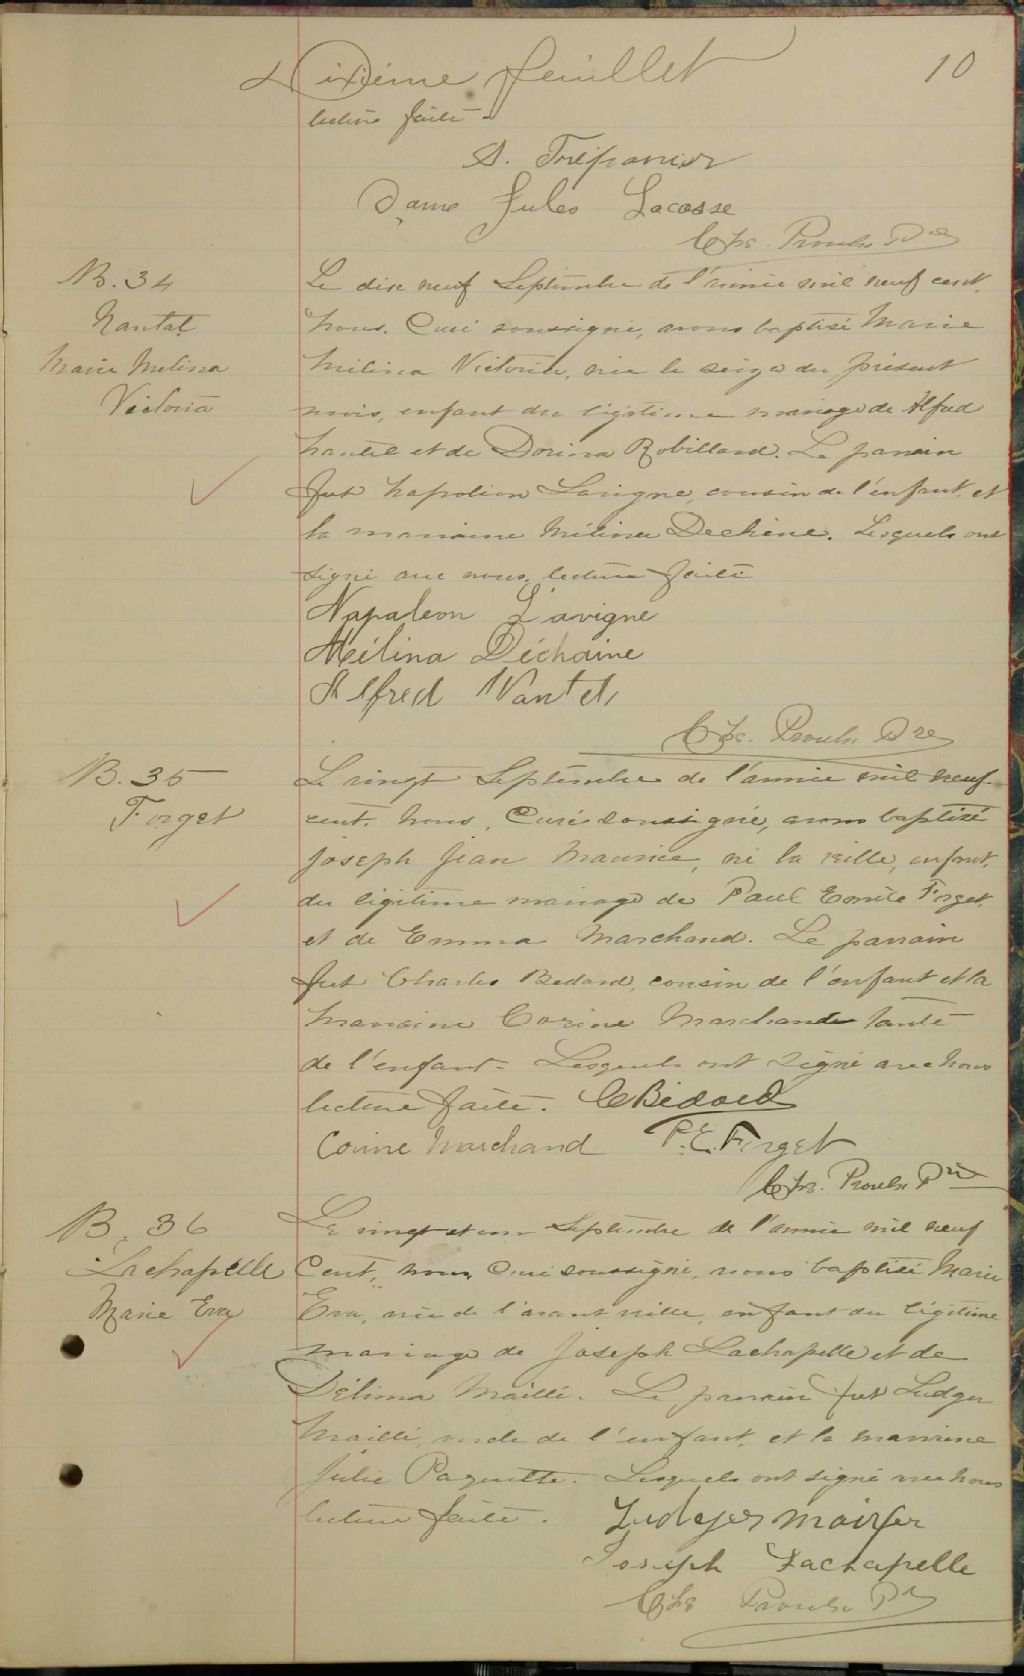 Dixième feuillet
10
lecture faite.
A. Trépanier
Dame Jules Lacasse
Chs. Proulx Ptre
B. 34
Nantel
Marie Melina
Victoria
Le dix neuf Septembre de l'année mil neuf cent,
nous, Curé soussigné, avons baptisé Marie
Mélina Victoria, née le seize du présent
mois, enfant du légitime mariage de Alfred
Nantel et de Dorina Robillard. Le parrain
fut Napoléon Lavigne, cousin de l'enfant, et
la marraine Mélina Dechène. Lesquels ont
signé avec nous, lecture faite
Napaleon Lavigne
Mélina Déchaine
Alfred Nantel
Chs. Proulx Ptre
B. 35
Forget
Le vingt Septembre de l'année mil neuf
cent, nous, Curé soussigné, avons baptisé
Joseph Jean Maurice, né la veille, enfant
du légitime mariage de Paul Emile Forget
et de Emma Marchand. Le parrain
fut Charles Bedard, cousin de l'enfant et la
marraine Corine Marchand tante
de l'enfant. Lesquels ont signé avec nous
lecture faite. C Bédard
Corine Marchand P. E. Forget
Chs. Proulx Ptre
B. 36
Lachapelle
Marie Eva
Le vingt et un Septembre de l'année mil neuf
Cent, nous, Curé soussigné, avons baptisé Marie
Eva, née de l'avant veille, enfant du légitime
mariage de Joseph Lachapelle et de
Délima Maillé. Le parrain fut Ludger
Maillé, oncle de l'enfant, et la marraine
Julie Paquette. Lesquels ont signé avec nous
lecture faite. Ludger
Joseph Lachapelle
Chs Proulx Ptre